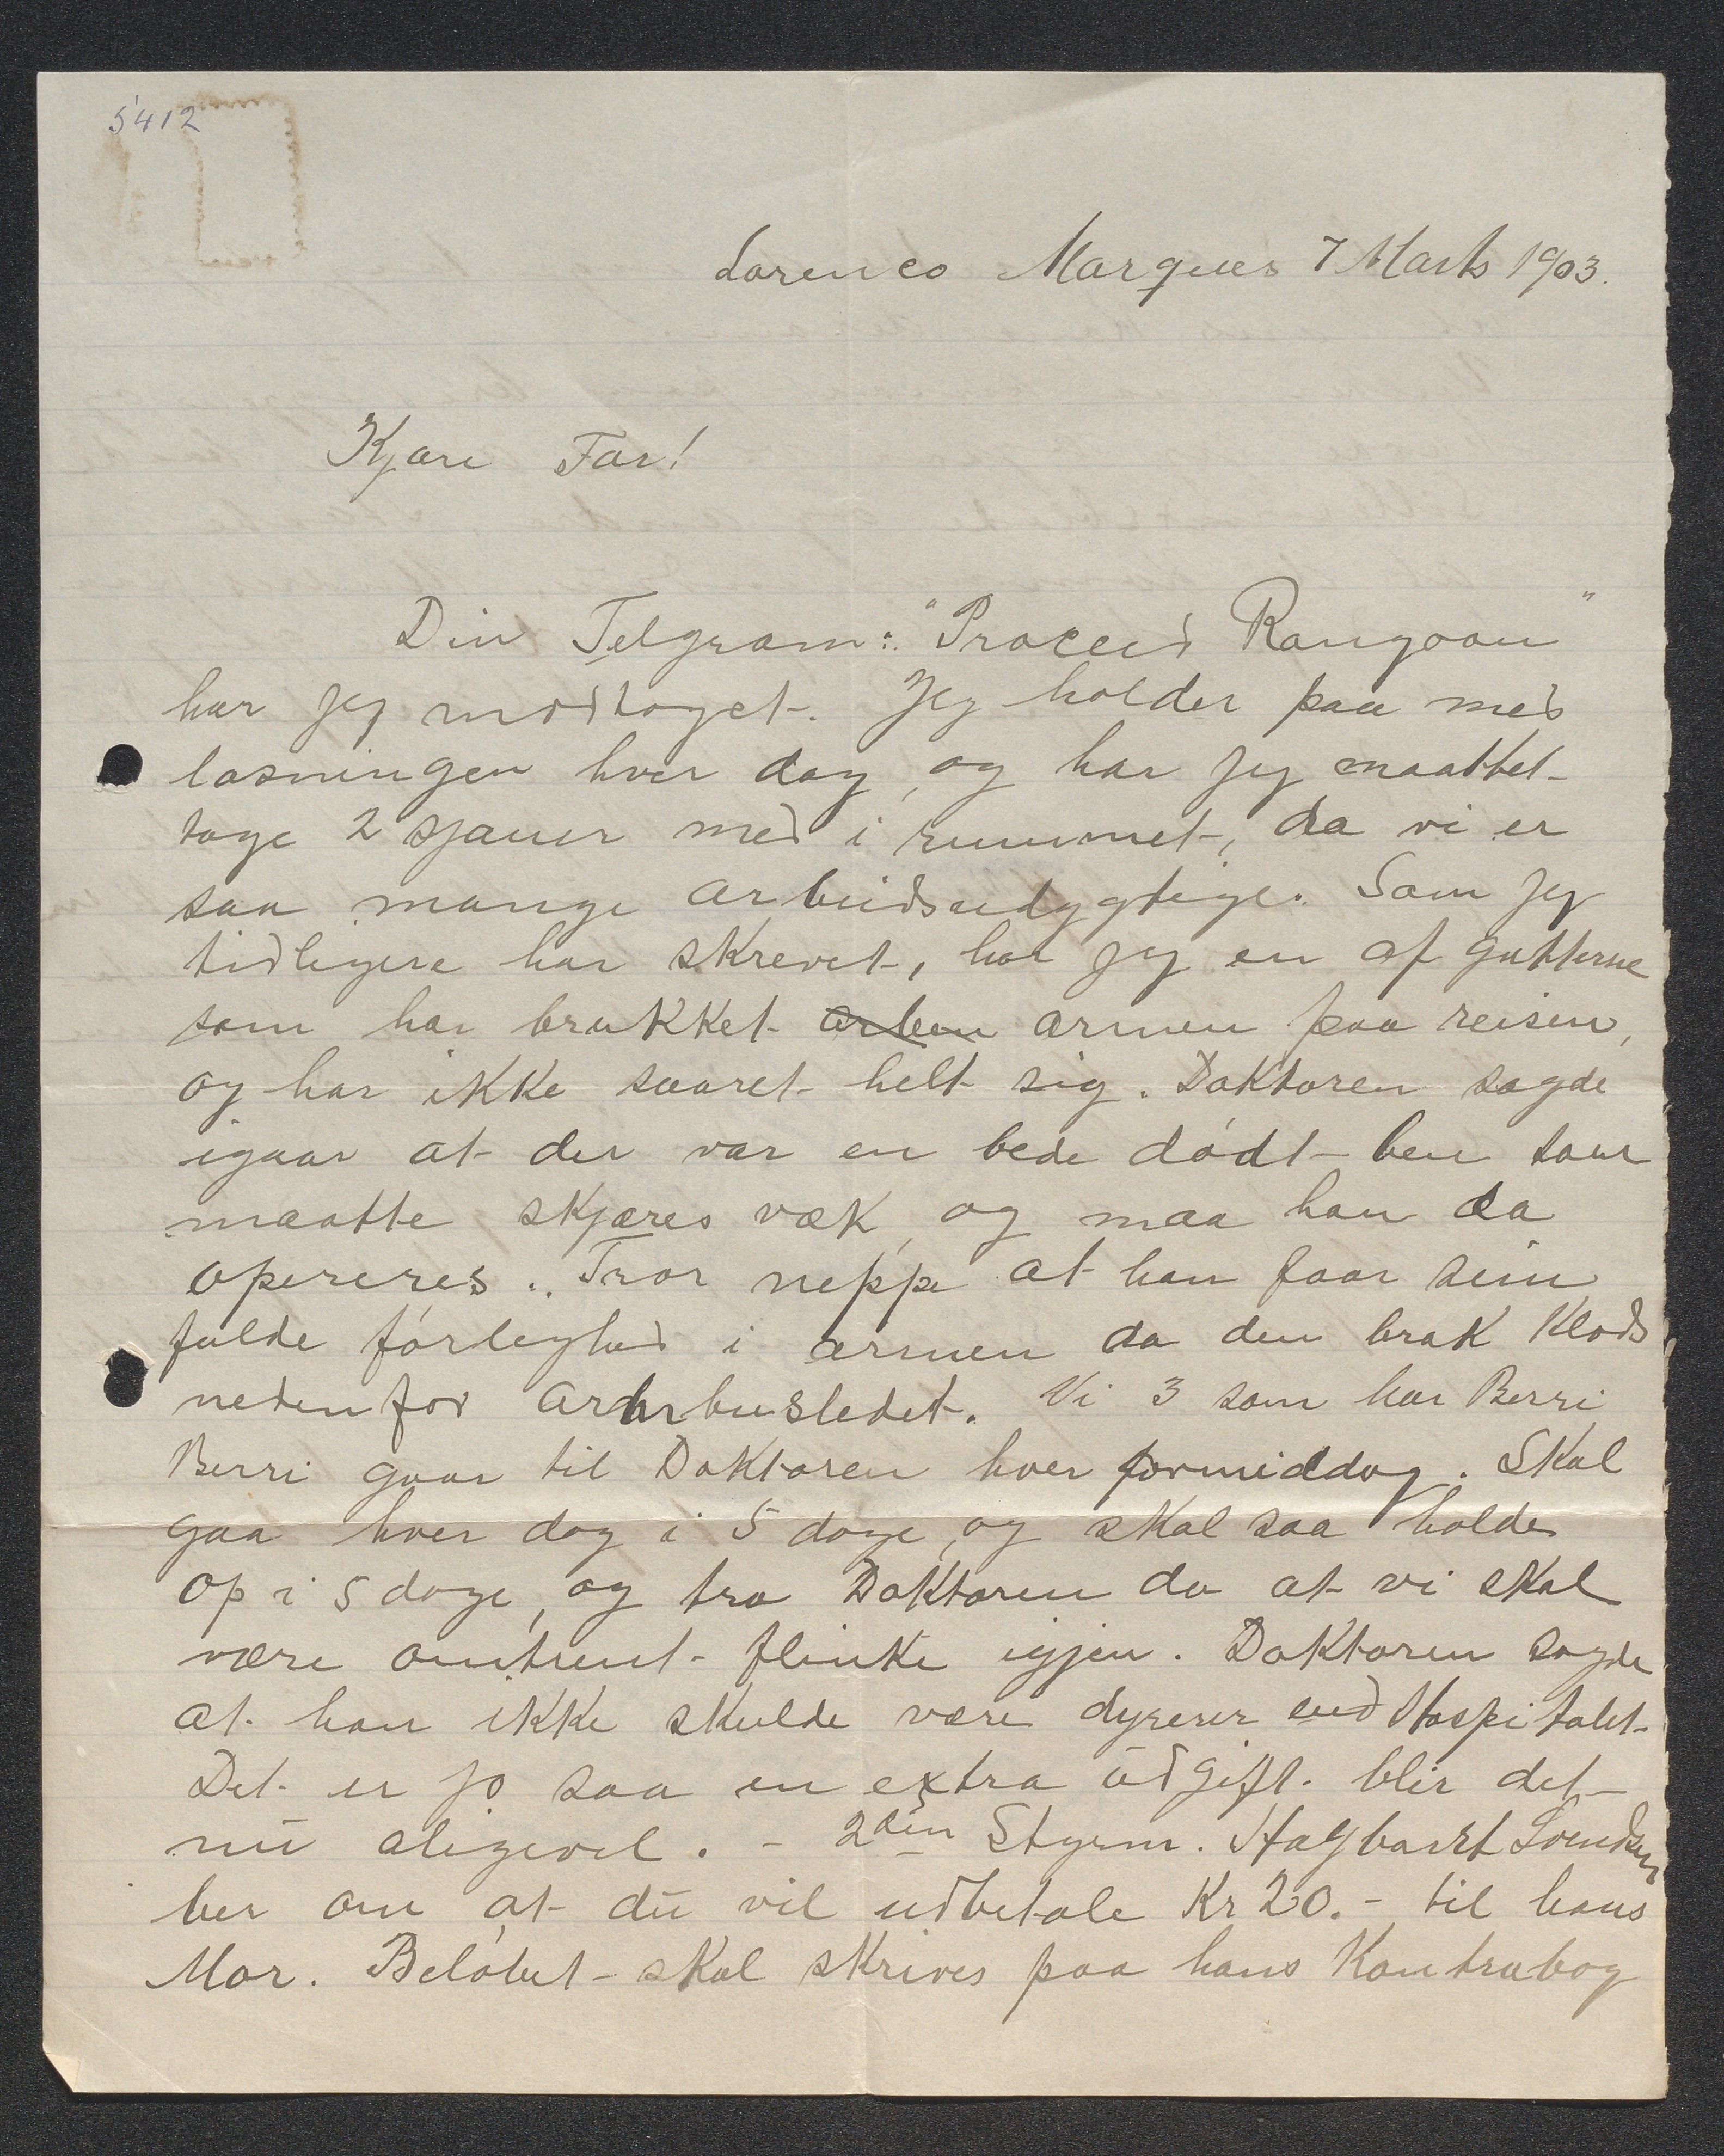 5412
Lorenco Marques 7 Marts 1903.
Kjære Far!
Din Telgram: "Proceed Rangoon"
har jeg modtaget. Jeg holder paa med
losningen hver dag, og har jeg maattet
tage 2 sjauer med i rummet, da vi er
saa mange arbeidsudygtige. Som jeg
tidligere har skrevet, har jeg en af gutterne
som har brukket arben armen paa reisen,
og har ikke svaret helt sig. Doktoren sagde
igaar at der var en bede dødt ben som
maatte skjæres væk, og maa han da
opereres. Tror neppe at han faar sin
fulde førleghed i armen da den brak klods
nedenfor arlnbusledet. Vi 3 som har Berri
Berri gaar til Doktoren hver formiddag. Skal
gaa hver dag i 5 dage, og skal saa holde
op i 5 dage, og tro Doktoren da at vi skal
være omtrent flinke igjen. Doktoren sagde
at han ikke skulde være dyrerer end Hospitalet.
Det er jo saa en extra udgift blir det
nu aligevel. - 2den Styrm. Hagbart Svendsen
ber om at du vil udbetale Kr 20.- til hans
Mor. Beløbet skal skrives paa hans Kontrabog